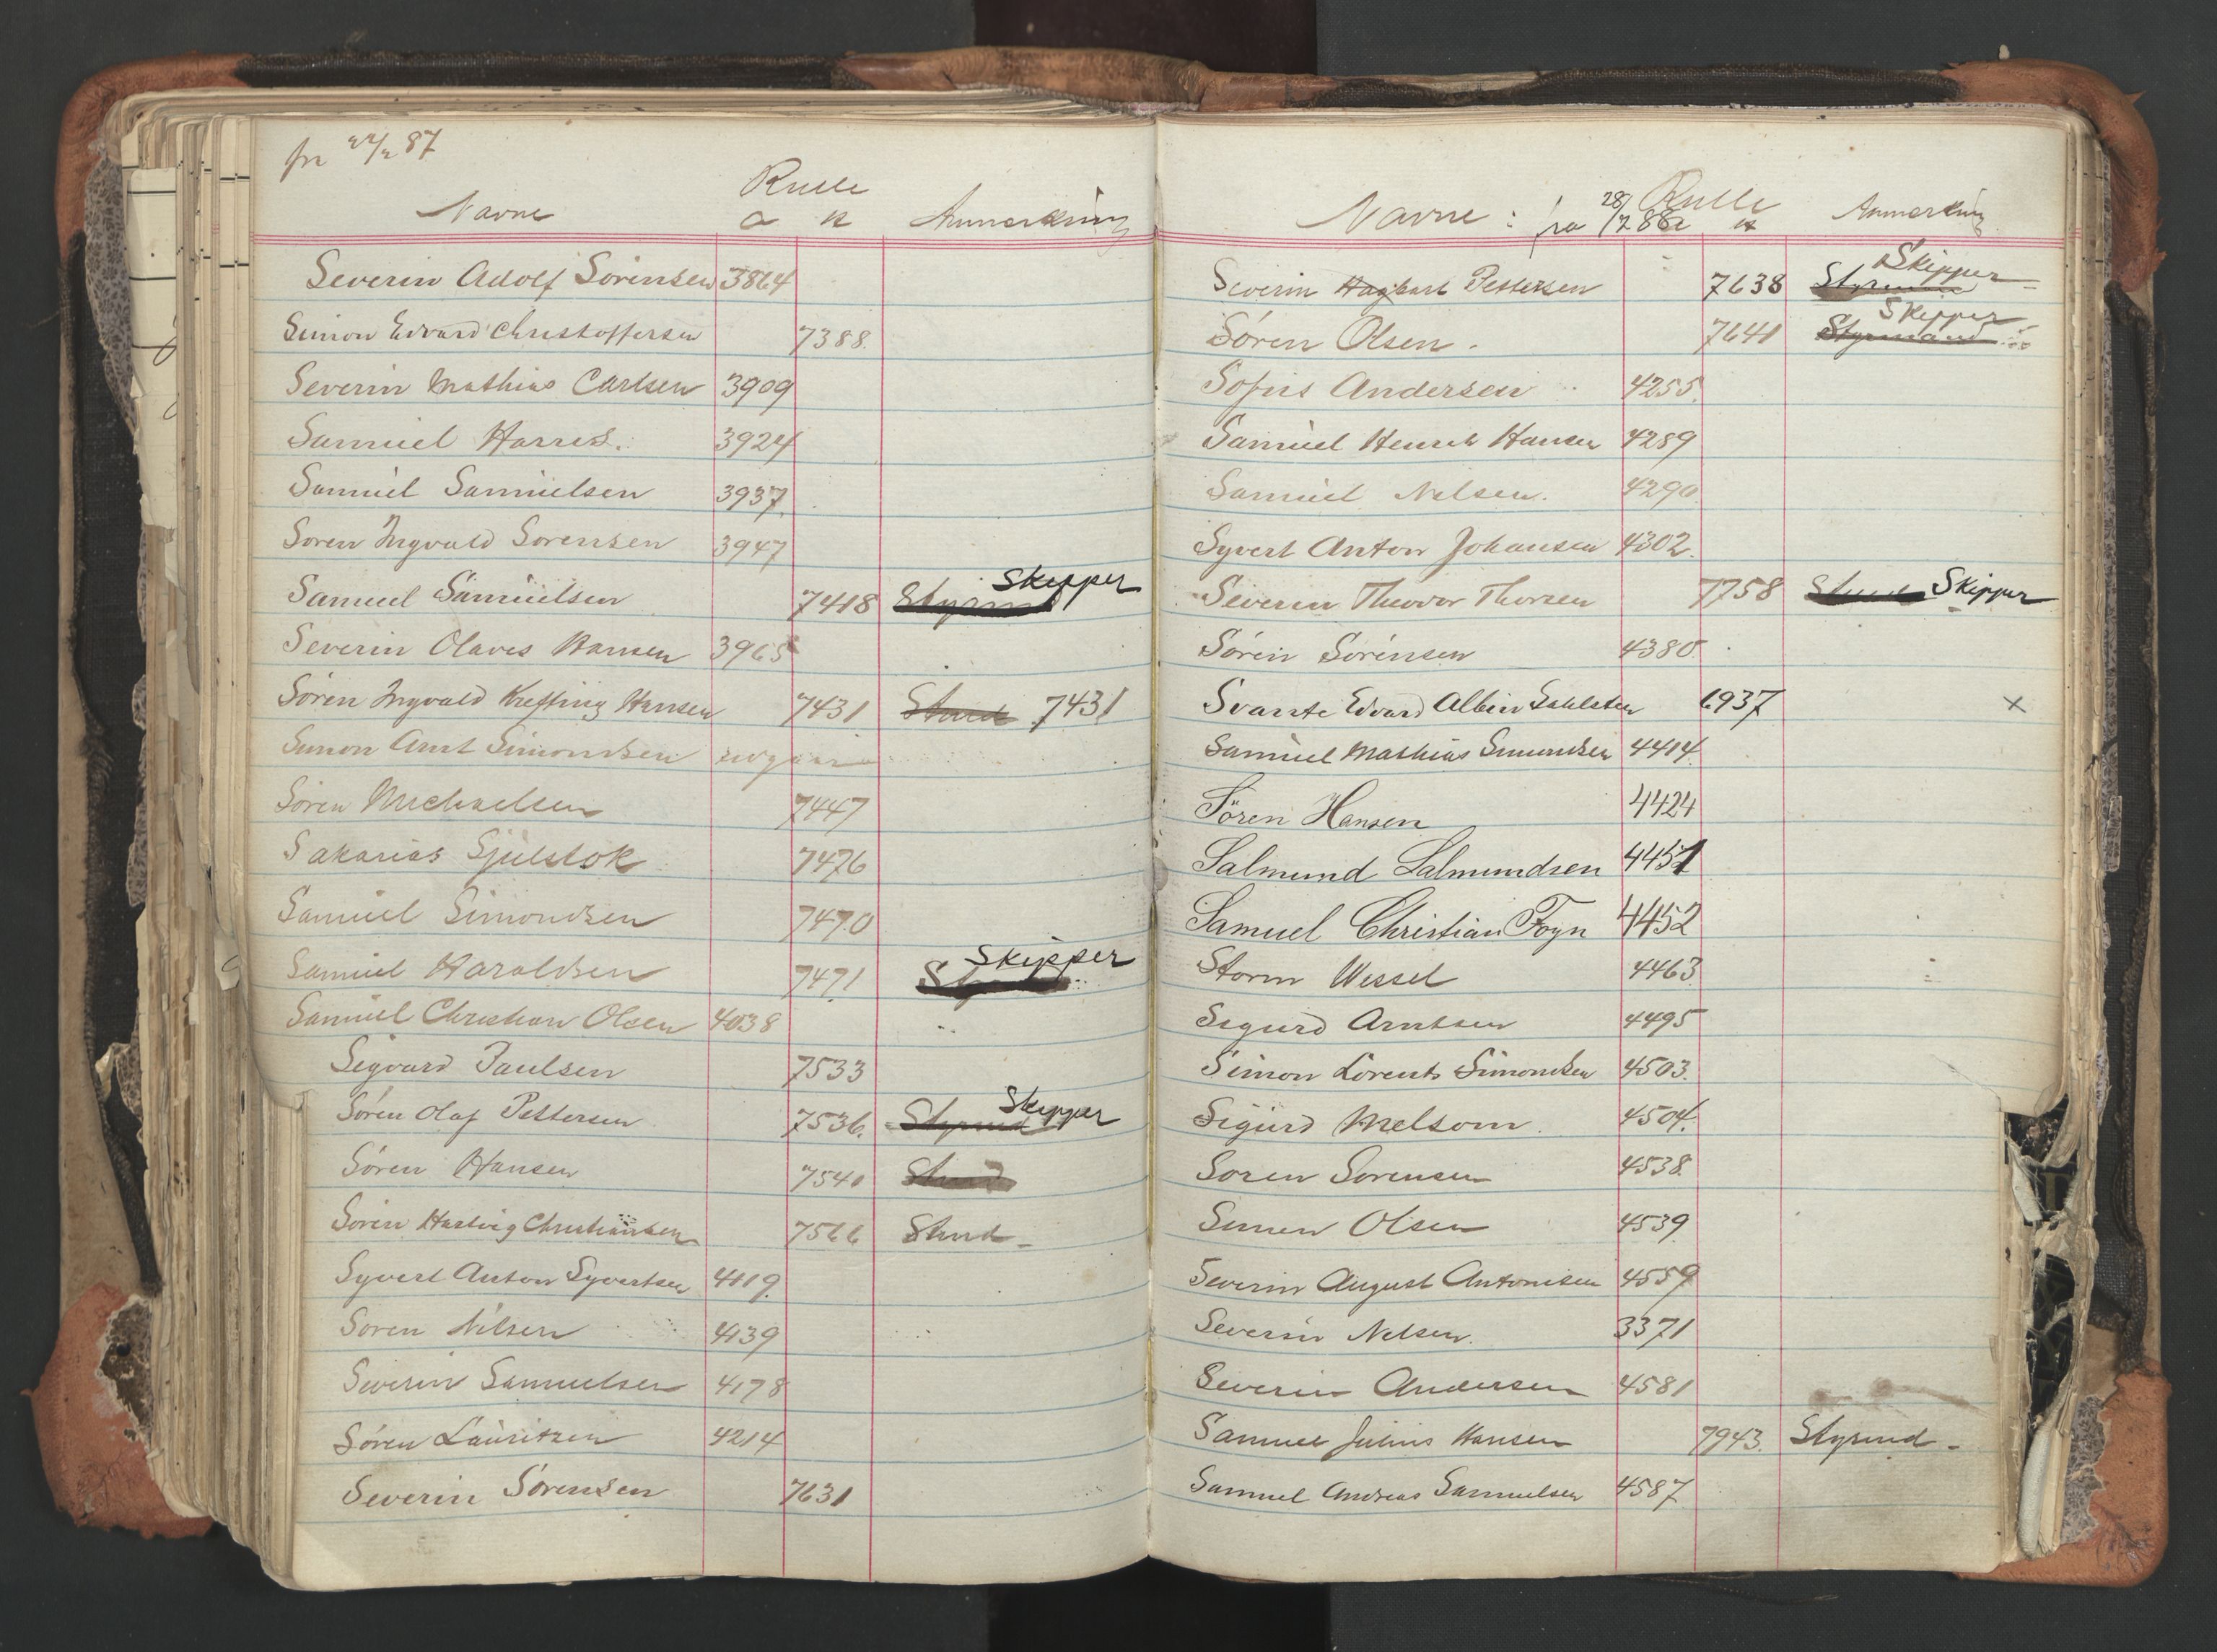 87
Rulle
Navne a k Anmerkning
Severin Adolf Sörensen 3864
Simon Edvard Christoffersen 7388.
Severin Mathias Carlsen 3909
Samuel Harris. 3924
Samuel Samuelsen 3937.
Soren Ingvald Sorensen 3947
Skipper
Samuel Samuelsen 7418 Styrmd
Severin Olaves Hansen 3965
Sören Ingvald Hansen 7431 Stmd 7431
Simon Arnt Simondsen udgaar
Sören Michaelsen 7447
Sakarias 7476
Samuel Simondsen 7470
Skipper
Samuel Haraldsen 7471
Samuel Christian Olsen 4038
Sigvard Paulsen 7533
Skipper
Sören Olaf Pettersen 7536. Styrmd
Sören Hansen 7540 Stmd
Sören Hartvig Christiansen 7566 Stmd
Syvert Anton Syvertsen 4119.
Soren Nilsen 4139
Severin Samuelsen 4178
Sören Lauritzen 4214
Severin Sörensen 7631
28/ Rulle
Navne : fra /2 88 a k Anmerkning
Skipper
Severin Hagbart Pettersen 7638 Styrmand
Skipper
Sören Olsen. 7641 Styrmand
Sofus Andersen 4255.
Samuel Henrik Hansen 4289
Samuel Nelsen. 4290.
Syvert Anton Johansen 4302.
Severin Theodor Thorsen 7758 Skipper
Sören Sörensen 4380.
Svante Edvard Albin 6937 x
Samuel Mathias Simondsen 4414.
Sören Hansen 4424
Salmund Salmundsen 4451
Samuel Christian Foyn 4452
Storm Wessel 4463
Sigurd Arntsen 4495
Simon Lorents Simondsen 4503.
Sigurd Melsom. 4504.
Soren Sorensen 4538.
Simen Olsen 4539
Severin August Antonisen 4559
Severin Nelsen. 3371
Severin Andersen 4581
Samuel Julius Hansen 7943. Styrmd
Samuel Andreas Samuelsen 4587